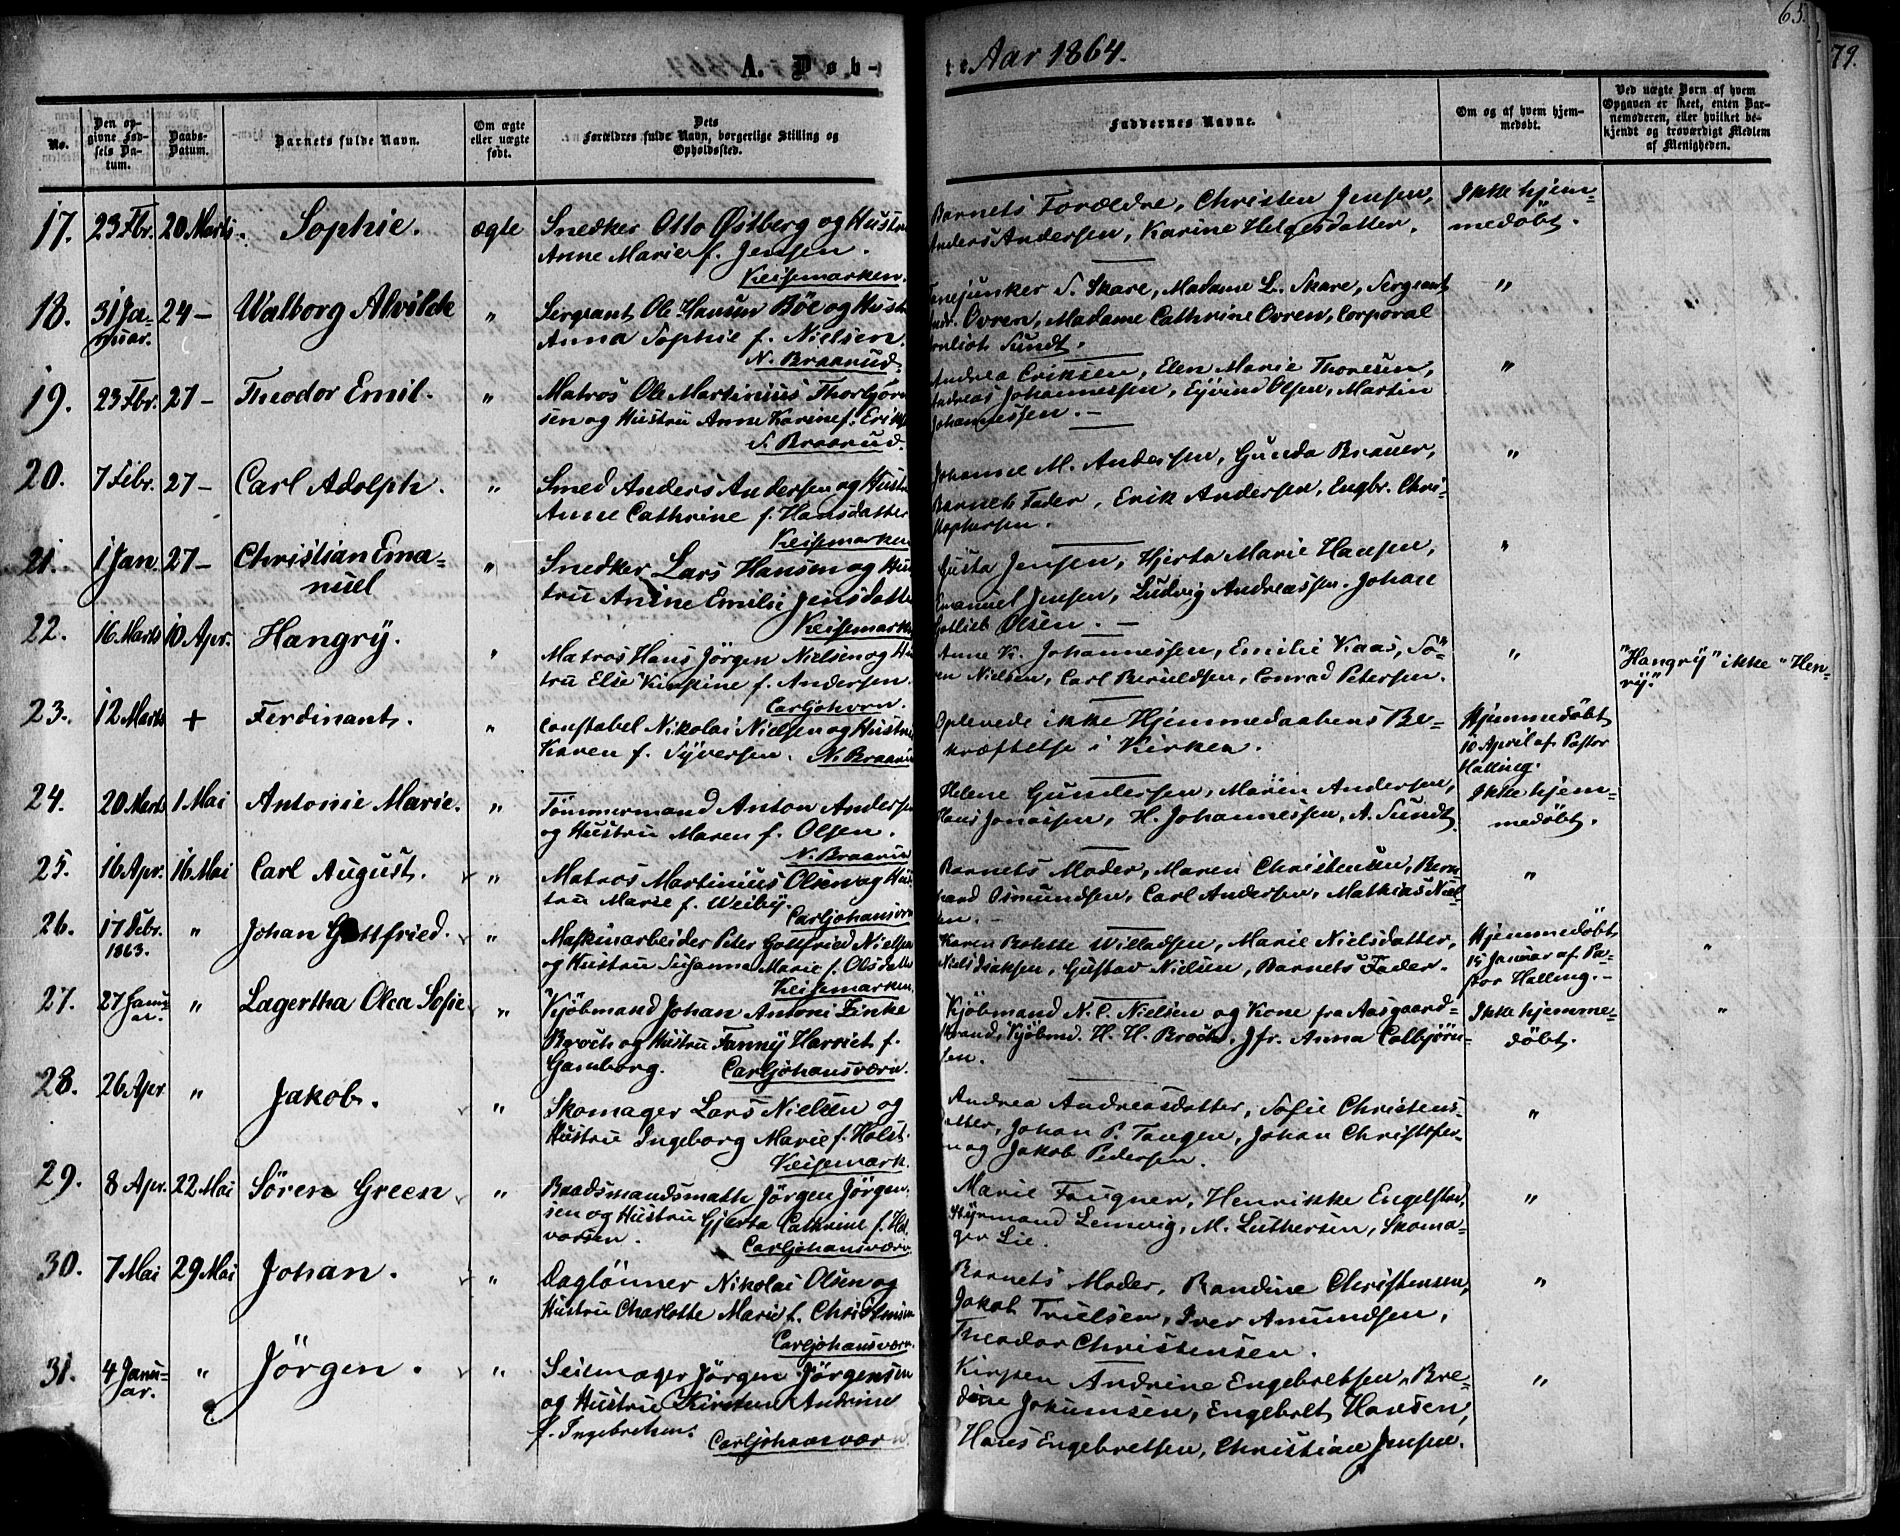 65.
79.
A. Døb-
te Aar 1864.
No.
Den op-
givne Fød-
sels Da-
tum.
Daabs-
Datum.
Barnets fulde Navn.
Om ægte
eller uægte
født.
Dets
Forældres fulde Navn, borgerlige Stilling og
Opholdssted.
Faddernes Navne.
Om og af hvem hjem-
medøbt.
Ved uægte Børn af hvem
Opgaven er skeet, enten Bar-
nemoderen, eller hvilket be-
kjendt og troværdigt Medlem
af Menigheden.
17. 23 Fbr. 20 Marts. Sophie. ægte
Snedker Otto Østberg og Hustru
Anne Marie f. Jensen.
Keisemarken.
Barnets Forældre, Christen Jensen,
Anders Andersen, Karine Helgesdatter.
Ikke hjem-
medøbt.
18. 31 Ja-
nuar. 24 — Walborg Alvilde "
Sergeant Ole Hansen Böe og Hustru
Anna Sophie f. Nielsen.
N. Braarud.
Fanejunker S. Skare, Madame L. Skare, Sergeant
Ovren, Madame Cathrine Ovren, Corporal
Sundt.
"
19. 23 Fbr. 27 — Theodor Emil. "
Matros Ole Martinius Thorbjörn-
sen og Hustru Anne Karine f. Eriks
S. Braarud.
Andrea Eriksen, Elen Marie Thoresen,
Andreas Johannessen, Eyvind Olsen, Martin
Johannessen. —
"
20. 7 Febr. 27 — Carl Adolph. "
Smed Anders Andersen og Hustru
Anne Cathrine f. Hansdatter
Keisemarken
Johanne M. Andersen, Gunda Brauer,
Barnets Fader, Erik Andersen, Engbr. Chri-
stophersen.
"
21. 1 Jan. 27 — Christian Ema-
nuel "
Snedker Lars Hansen og Hus
tru Anine Emilie Jensdatter
Keisemark
Gusta Jensen, Hjerta Marie Hansen,
Emanuel Jensen, Ludvig Andreassen, Johan
Gotlieb Olsen. —
"
22. 16 Marts 10 Apr. Hangrÿ. "
Matros Hans Jörgen Nielsen og Hu
tru Else Kirstine f. Andersen.
Carljohsvrn.
Anne K. Johannessen, Emilie Kaas, Sö-
ren Nielsen, Carl Beruldsen, Conrad Petersen.
"
"Hangrÿ" ikke "Hen-
rÿ".
23. 12 Marts + Ferdinant. "
Constabel Nikolai Nielsen og Hustru
Karen f. Syversen. N. Braaru
Oplevede ikke Hjemmedaabens Be-
kræftelse i Kirken.
Hjemmedøbt
10 April af Pastor
Halling.
24. 20 Marts 1 Mai Antonie Marie. "
Tömmermand Anton Andersen
og Hustru Maren f. Olsen.
N. Braaru
Helene Gundersen, Maren Andersen,
Hans Jonassen, H. Johannessen, A. Sundt.
Ikke hjem-
medøbt.
25. 16 Apr. 16 Mai Carl August. "
Matros Martinius Olsen og Hus
tru Marie f. Weiby.
Carljohansvrn
Barnets Moder, Maren Christensen, Bern
hard Osmundsen, Carl Andersen, Mathias Niel-
sen. —
"
26. 17 Febr.
1863. " Johan Gottfried. "
Maskinarbeider Peter Gottfried Nielsen
og Hustru Susanna Marie f. Olsdatter
Keisemarken.
Karen Willadsen, Marie Nielsdatter,
Niels Isaksen, Gustav Nielsen, Barnets Fader.
Hjemmedøbt
15 Januar af Pa-
stor Halling. —
"
27. 27 Janu-
ar. " Lagertha Olea Sofie "
Kjöbmand Johan Antoni Zinke
Broch og Hustru Fanny Harriet f.
Gamborg. Carljohansværn.
Kjöbmand N. C. Nielsen og Kone fra Aasgaard-
strand, Kjöbmd. H. H. Broch, Jfr. Anna Colbjörn-
sen.
Ikke hjemme-
døbt.
"
28. 26 Apr. " Jakob. "
Skomager Lars Nielsen og
Hustru Ingeborg Marie f. Holst.
Keisemark.
Andrea Andreasdatter, Sofie Christens-
datter, Johan P. Tangen, Johan Christofer-
sen og Jakob Pedersen.
"
29. 8 Apr. 22 Mai Sören Green "
Baadsmandsmath Jörgen Jörgen-
sen og Hustru Gjerta Cathrine f. Hal
vorsen.
Carljohansværn
Marie Faugner, Henrikke Engelstad,
Styrmand Lemvig, M. Luthersen, Skoma-
ger Lie.
"
30. 7 Mai 29 Mai Johan. "
Daglönner Nikolai Olsen og
Hustru Charlotte Marie f. Christensen
Carljohansværn.
Barnets Moder, Randine Christensen,
Jakob Truelsen, Iver Amundsen,
Theodor Christensen.
"
31. 4 Janu-
ar. " Jörgen. "
Seilmager Jörgen Jörgensen
og Hustru Kirsten Andrine
f. Ingebretsen.
Carljohansværn.
Kirsten Andrine Engebretsen, Bre-
dine Jokumsen, Engebret Hansen,
Hans Engebretsen, Christian Jensen.
"